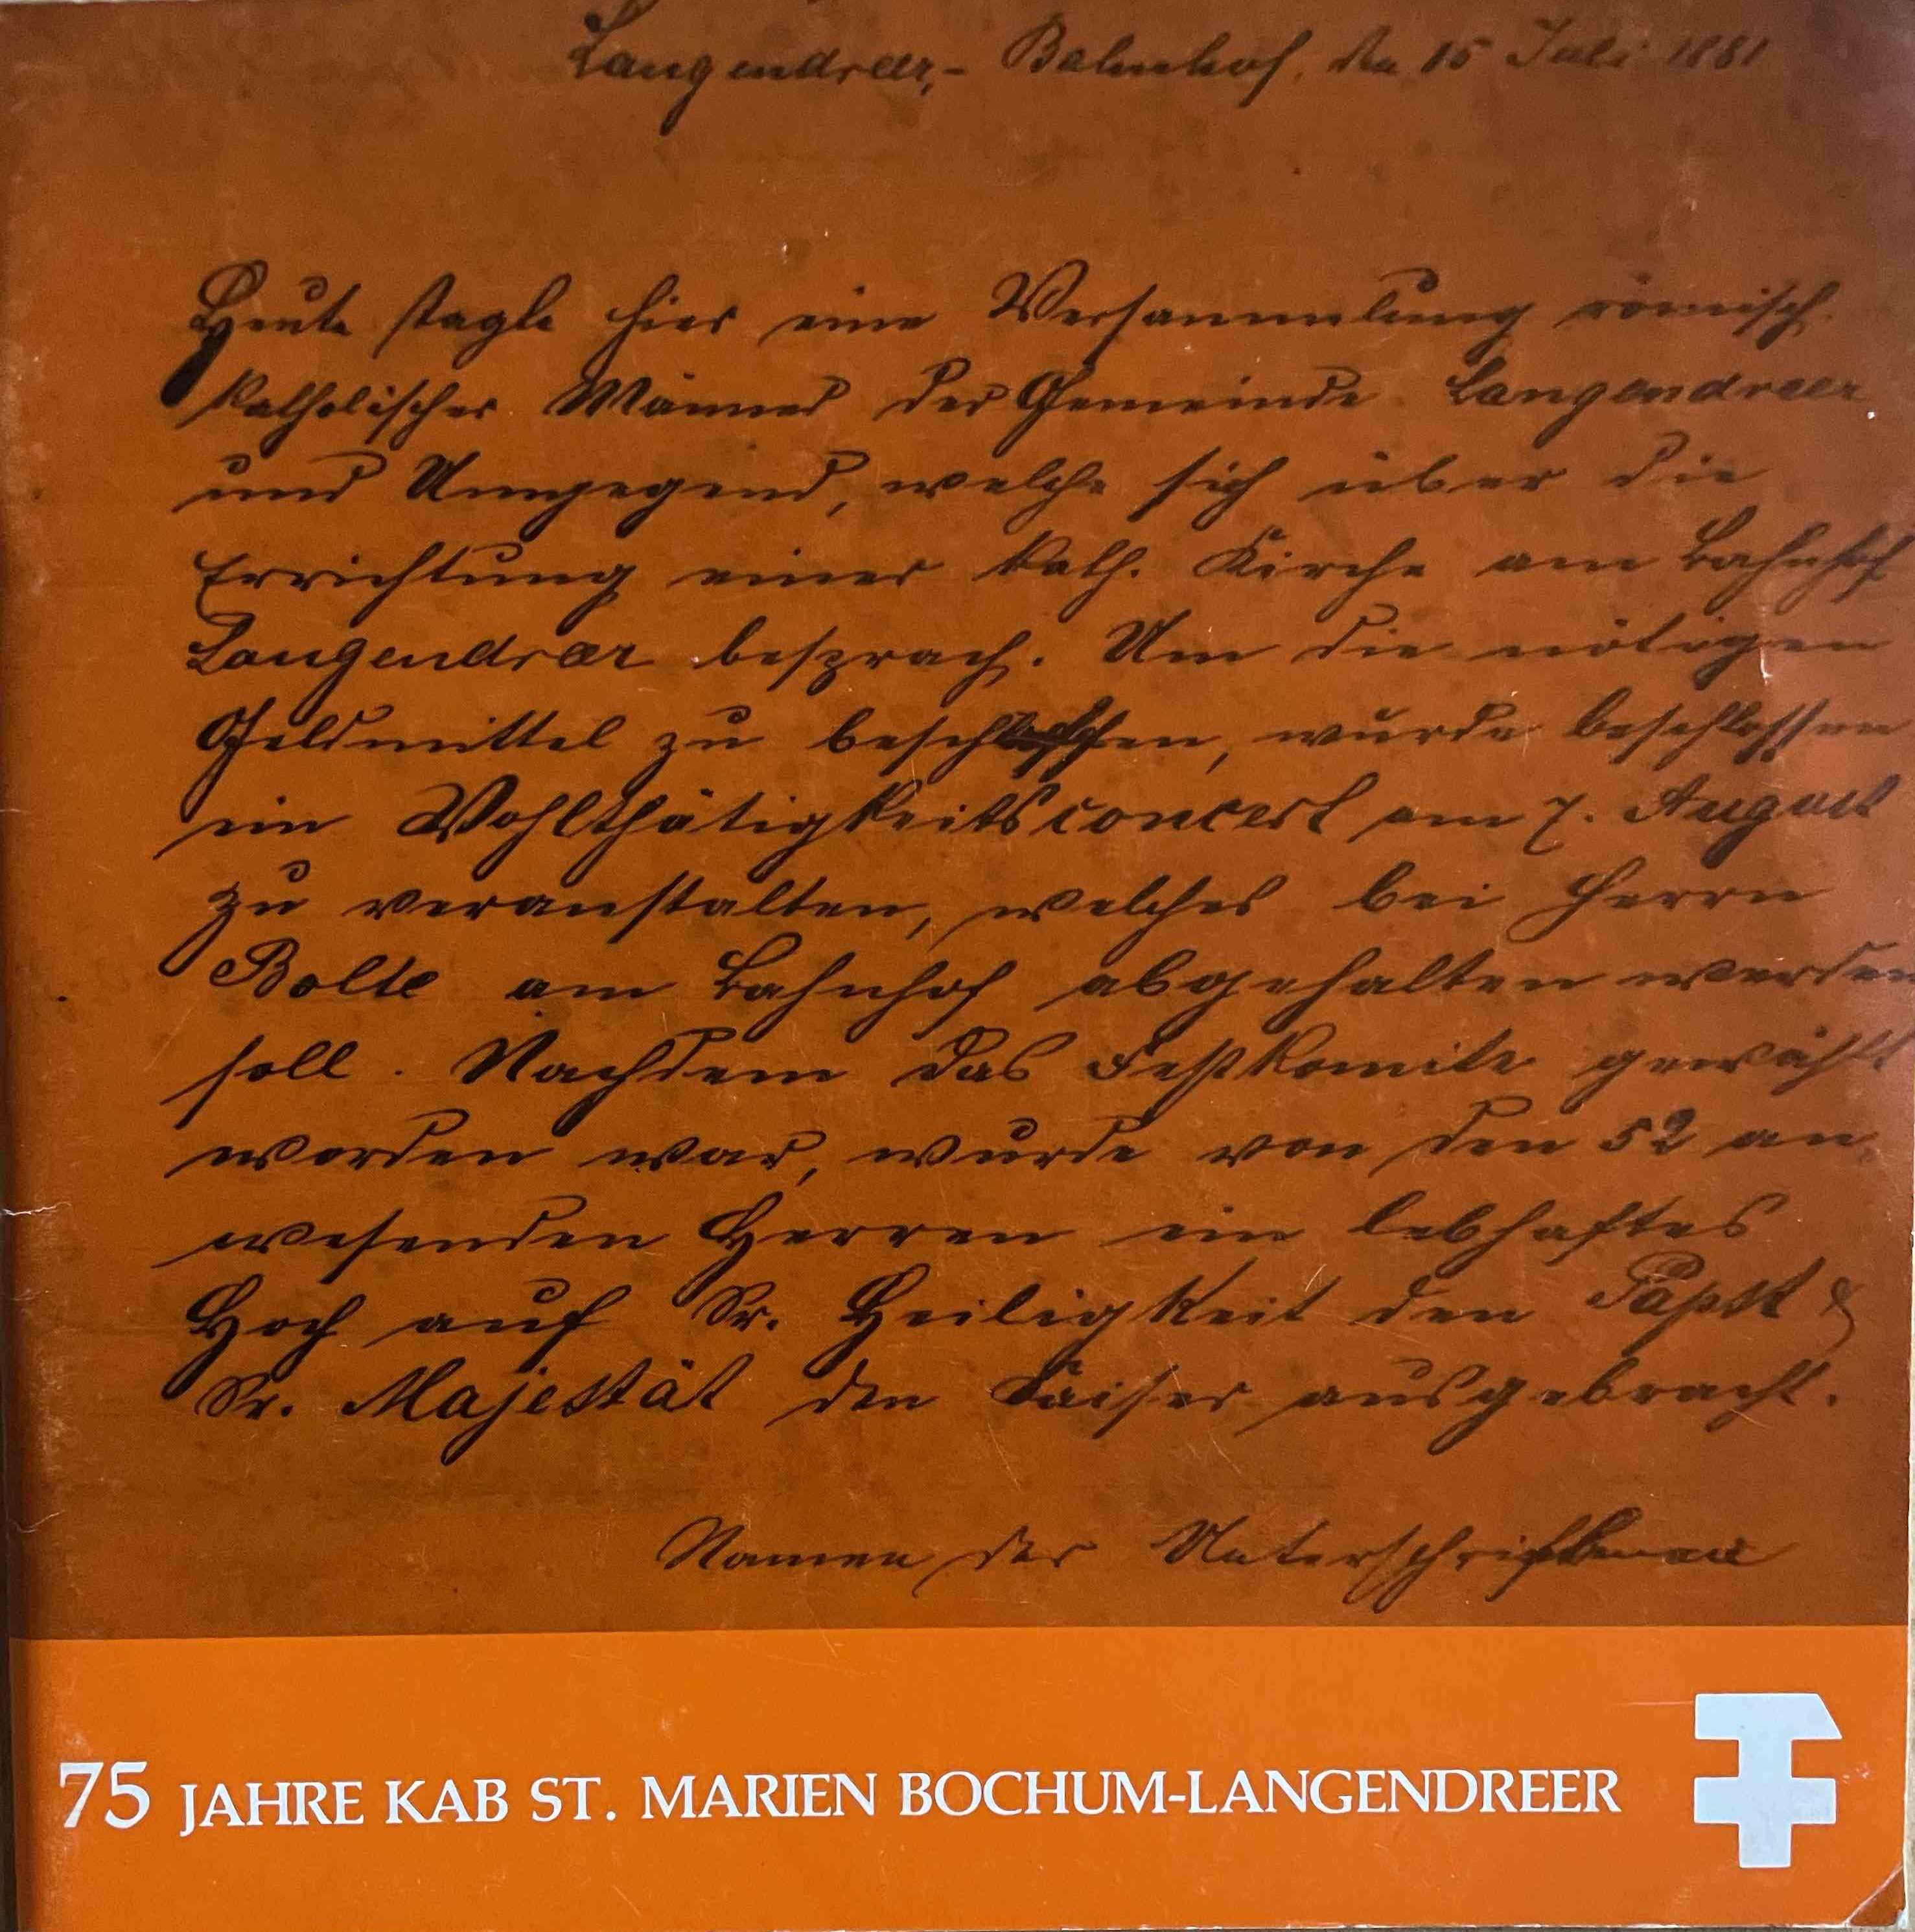 Langendreer,- Bahnhof, den 15 Juli 1881
Heute tagte hier eine Versammlung römisch.
katholischer Männer der Gemeinde Langendreer
und Umgegend, welche sich über die
Errichtung einer kath. Kirche am Bahnhof
Langendreer besprach. Um die nötigen
Geldmittel zu beschaffen, wurde beschlossen
ein Wohlthätigkeitsconcert am 7. August
zu veranstalten, welches bei Herrn
Bolte am Bahnhof abgehalten werden
soll. Nachdem das Festkomite gewählt
worden war, wurde von den 52 an-
wesenden Herren ein lebhaftes
Hoch auf Sr. Heiligkeit den Papst &
Sr. Majestät den Kaiser ausgebracht.
Namen der
75 JAHRE KAB ST. MARIEN BOCHUM-LANGENDREER